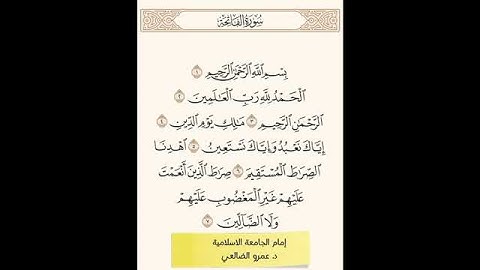 سُورَةُ الفَاتِحَةِ
بِسْمِ اللَّهِ الرَّحْمَٰنِ الرَّحِيمِ ١
الْحَمْدُ لِلَّهِ رَبِّ الْعَالَمِينَ ٢
الرَّحْمَٰنِ الرَّحِيمِ ٣ مَالِكِ يَوْمِ الدِّينِ ٤
إِيَّاكَ نَعْبُدُ وَإِيَّاكَ نَسْتَعِينُ ٥ اهْدِنَا
الصِّرَاطَ الْمُسْتَقِيمَ ٦ صِرَاطَ الَّذِينَ أَنْعَمْتَ
عَلَيْهِمْ غَيْرِ الْمَغْضُوبِ عَلَيْهِمْ
وَلَا الضَّالِّينَ ٧
إمام الجامعة الاسلامية
د. عمرو الضالعي